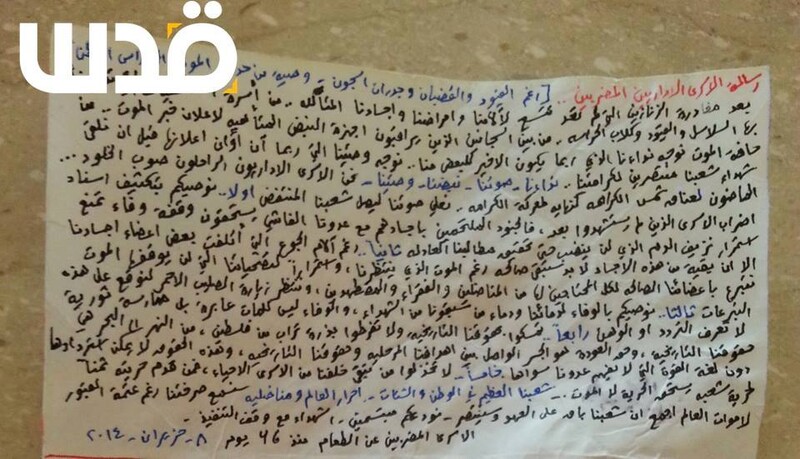 قدس
رسالة الأسرى الإداريين المضربين .. [رغم القيود والقضبان وجدران السجون - وصية من
بعد مغادرة الزنازين التي لم تعد تتسع لآلامنا وأمراضنا وأجسادنا المتآكلة .. من أسرة
بها السلاسل والقيود وكلاب الحراسة .. من بين السجانين الذين يراقبون أجهزة النبض المتأهبة لإعلان خبر الموت .. من
حافة الموت نوجه نداءنا الذي ربما يكون الأخير للبعض منا .. نوجه وصيتنا التي ربما آن أوان إعلانها قبل أن نلقى
شهداء شعبنا منتصرين لكرامتنا .. نداءنا - صوتنا - نبضنا - وصيتنا - نحن الأسرى الإداريون الراحلون صوب الخلود ...
الماضون لعناق شمس الكرامة كنهاية لمعركة الكرامة .. نعلي صوتنا ليصل شعبنا المنتفض أولا .. نوصيكم بتكثيف إسناد
إضراب الأسرى الذين لم يستشهدوا بعد ، فالجنود الملتحمين بأجسادهم مع عدونا الفاشي يستحقون وقفة وفاء تمنع
استمرار نزيف الدم الذي لن ينضب حتى تحقيق مطالبنا العادلة ثانيا .. رغم آلام الجوع التي أتلفت بعض أعضاء أجسادنا
إلا أن بقية من هذه الأجساد لا بد ستبقى صالحة رغم الموت الذي ينتظرنا ، واستمرارا لتضحياتنا التي لن يوقفها الموت
نتبرع بأعضائنا الصالحة لكل المحتاجين لها من المناضلين والفقراء والمضطهدين ، وننتظر زيارة الصليب الأحمر لنوقع على هذه
التبرعات ثالثا .. نوصيكم بالوفاء لدمائنا ودماء من سبقونا من الشهداء ، والوفاء ليس كلمات عابرة بل ممارسة ثورية
لا تعرف التردد أو الوهن رابعا .. تمسكوا بحقوقنا التاريخية ولا تفرطوا بذرة تراب من فلسطين ، من النهر إلى البحر هي
حقوقنا التاريخية ، وحق العودة هو الجسر الواصل بين أهدافنا المرحلية وحقوقنا التاريخية ، وهذه الحقوق لا يمكن استردادها
دون لغة القوة التي لا يفهم عدونا سواها خامسا .. لا تخذلوا من تبقى خلفنا من الأسرى الأحياء ، فمن قدم حريته ثمنا
لحرية شعبه يستحق الحرية لا الموت .. شعبنا العظيم في الوطن والشتات - أحرار العالم ومناضليه سنسمع صرختنا رغم عتمة القبور
لأموات العالم أجمع أن شعبنا باق على العهد وسينتصر - نودعكم مبتسمين - الشهداء مع وقف التنفيذ -
الأسرى المضربين عن الطعام منذ 46 يوم ٨ - حزيران - ٢٠١٤